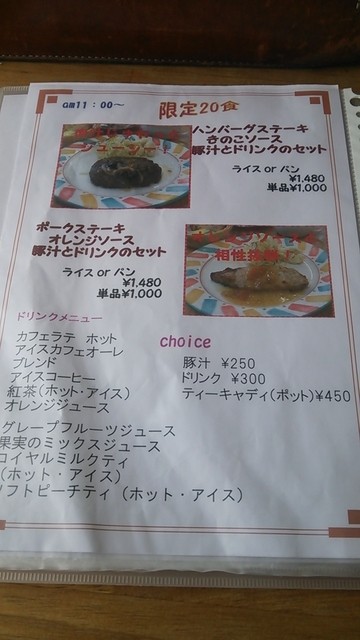 AM11：00～
限定20食
ハンバーグステーキ
きのこソース
豚汁とドリンクのセット
ライス or パン
¥1,480
単品¥1,000
ポークステーキ
オレンジソース
豚汁とドリンクのセット
ライス or パン
¥1,480
単品¥1,000
相性抜群！
ドリンクメニュー
カフェラテ ホット
アイスカフェオーレ
ブレンド
アイスコーヒー
紅茶（ホット・アイス）
オレンジジュース
グレープフルーツジュース
果実のミックスジュース
ロイヤルミルクティ
（ホット・アイス）
ソフトピーチティ（ホット・アイス）
choice
豚汁 ¥250
ドリンク ¥300
ティーキャディ（ポット）¥450